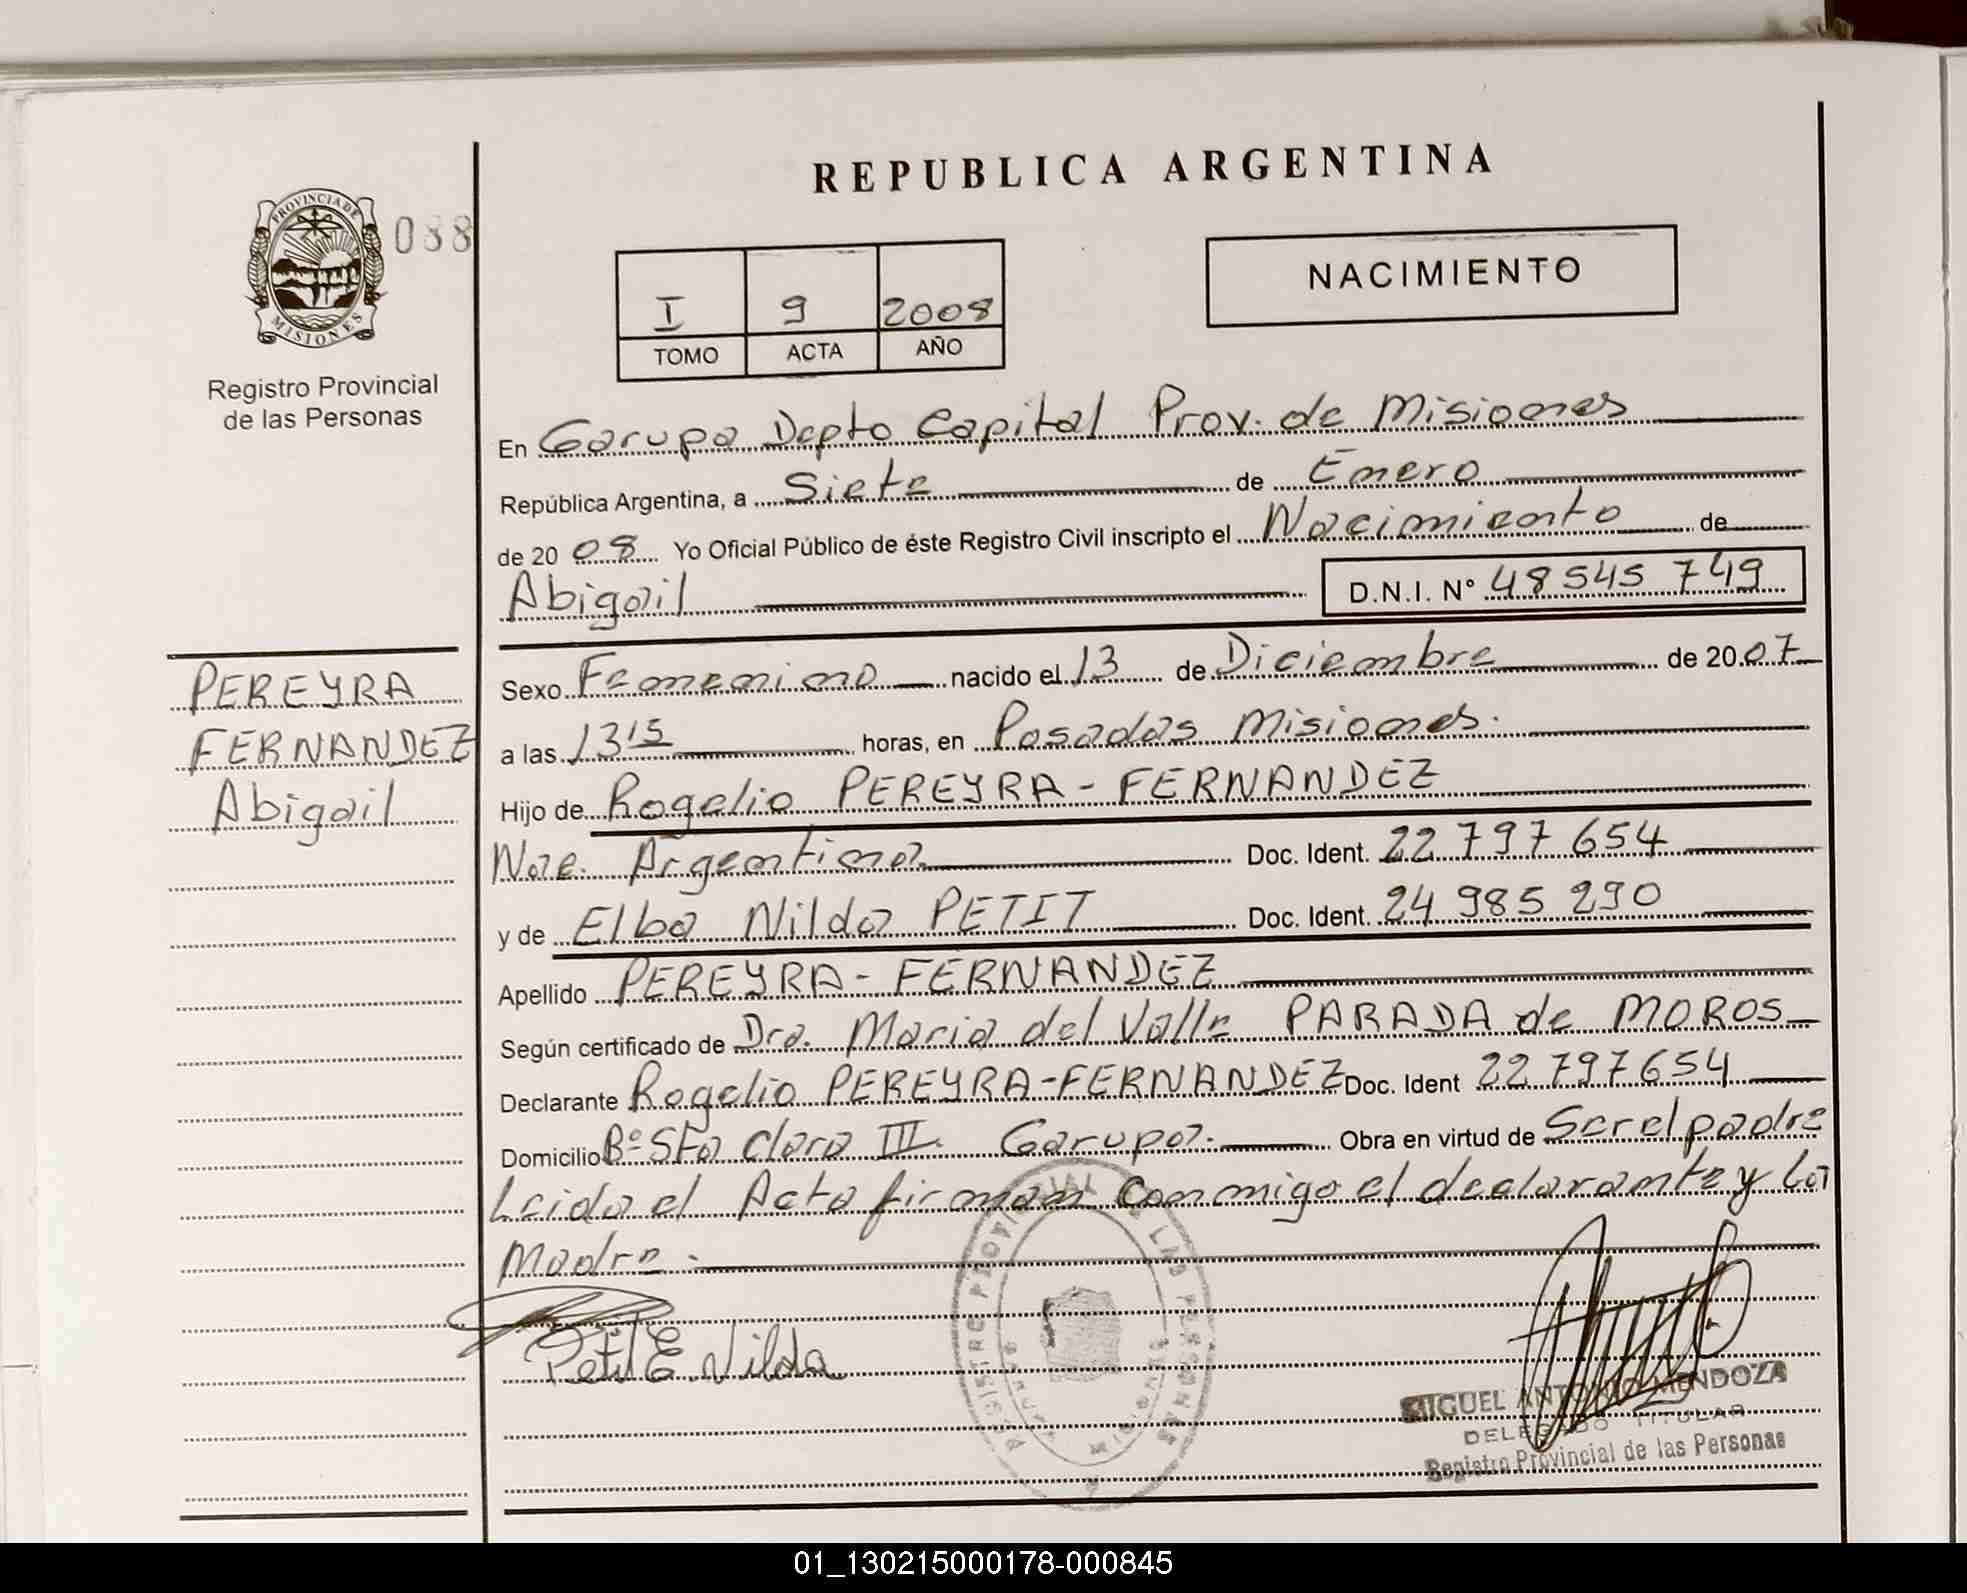 REPUBLICA ARGENTINA
PROVINCIA DE
MISIONES
088
Registro Provincial
de las Personas
NACIMIENTO
I 9 2008
TOMO ACTA AÑO
En Garupa Depto Capital Prov. de Misiones
República Argentina, a Siete de Enero
de 2008 Yo Oficial Público de éste Registro Civil inscripto el Nacimiento de
Abigail D.N.I. N° 48 545 749
PEREYRA
FERNANDEZ
Abigail
Sexo Femenino nacido el 13 de Diciembre de 2007
a las 13 15 horas, en Posadas Misiones.
Hijo de Rogelio PEREYRA - FERNANDEZ
Nac. Argentina. Doc. Ident. 22 797 654
y de Elba Nilda PETIT Doc. Ident. 24 985 290
Apellido PEREYRA - FERNANDEZ
Según certificado de Dra. Maria del Valle PARADA de MOROS
Declarante Rogelio PEREYRA-FERNANDEZ Doc. Ident 22 797 654
Domicilio B° Sta Clara III. Garupa. Obra en virtud de Ser el padre
Leida el Acta firman conmigo el declarante y la
Madre.
Petit E. Nilda
REGISTRO PROVINCIAL DE LAS PERSONAS
MIGUEL ANTONIO MENDOZA
DELEGADO TITULAR
Registro Provincial de las Personas
01_130215000178-000845